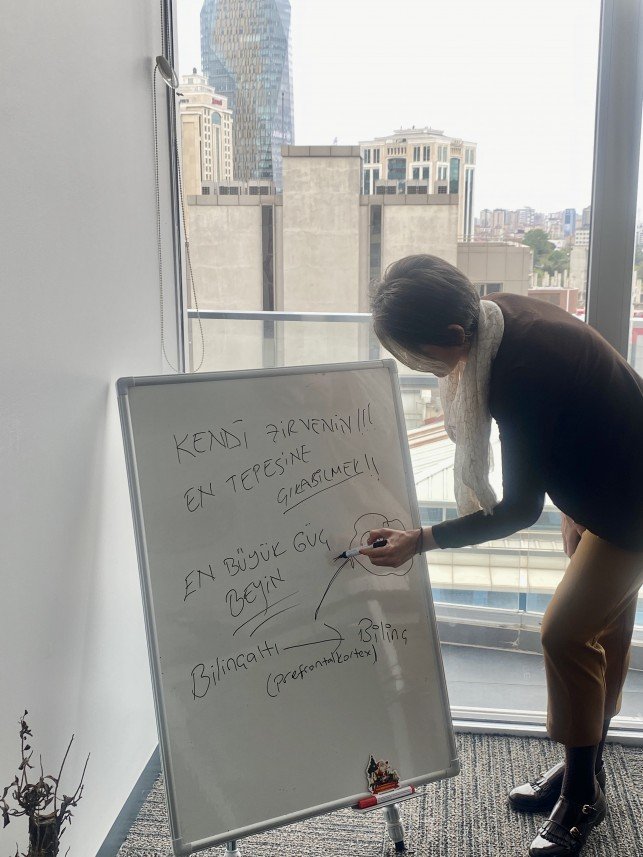 KENDİ ZİRVENİN!!!
EN TEPESİNE
ÇIKABİLMEK!!
EN BÜYÜK GÜÇ
BEYİN
Bilinçaltı → Bilinç
(prefrontal kortex)